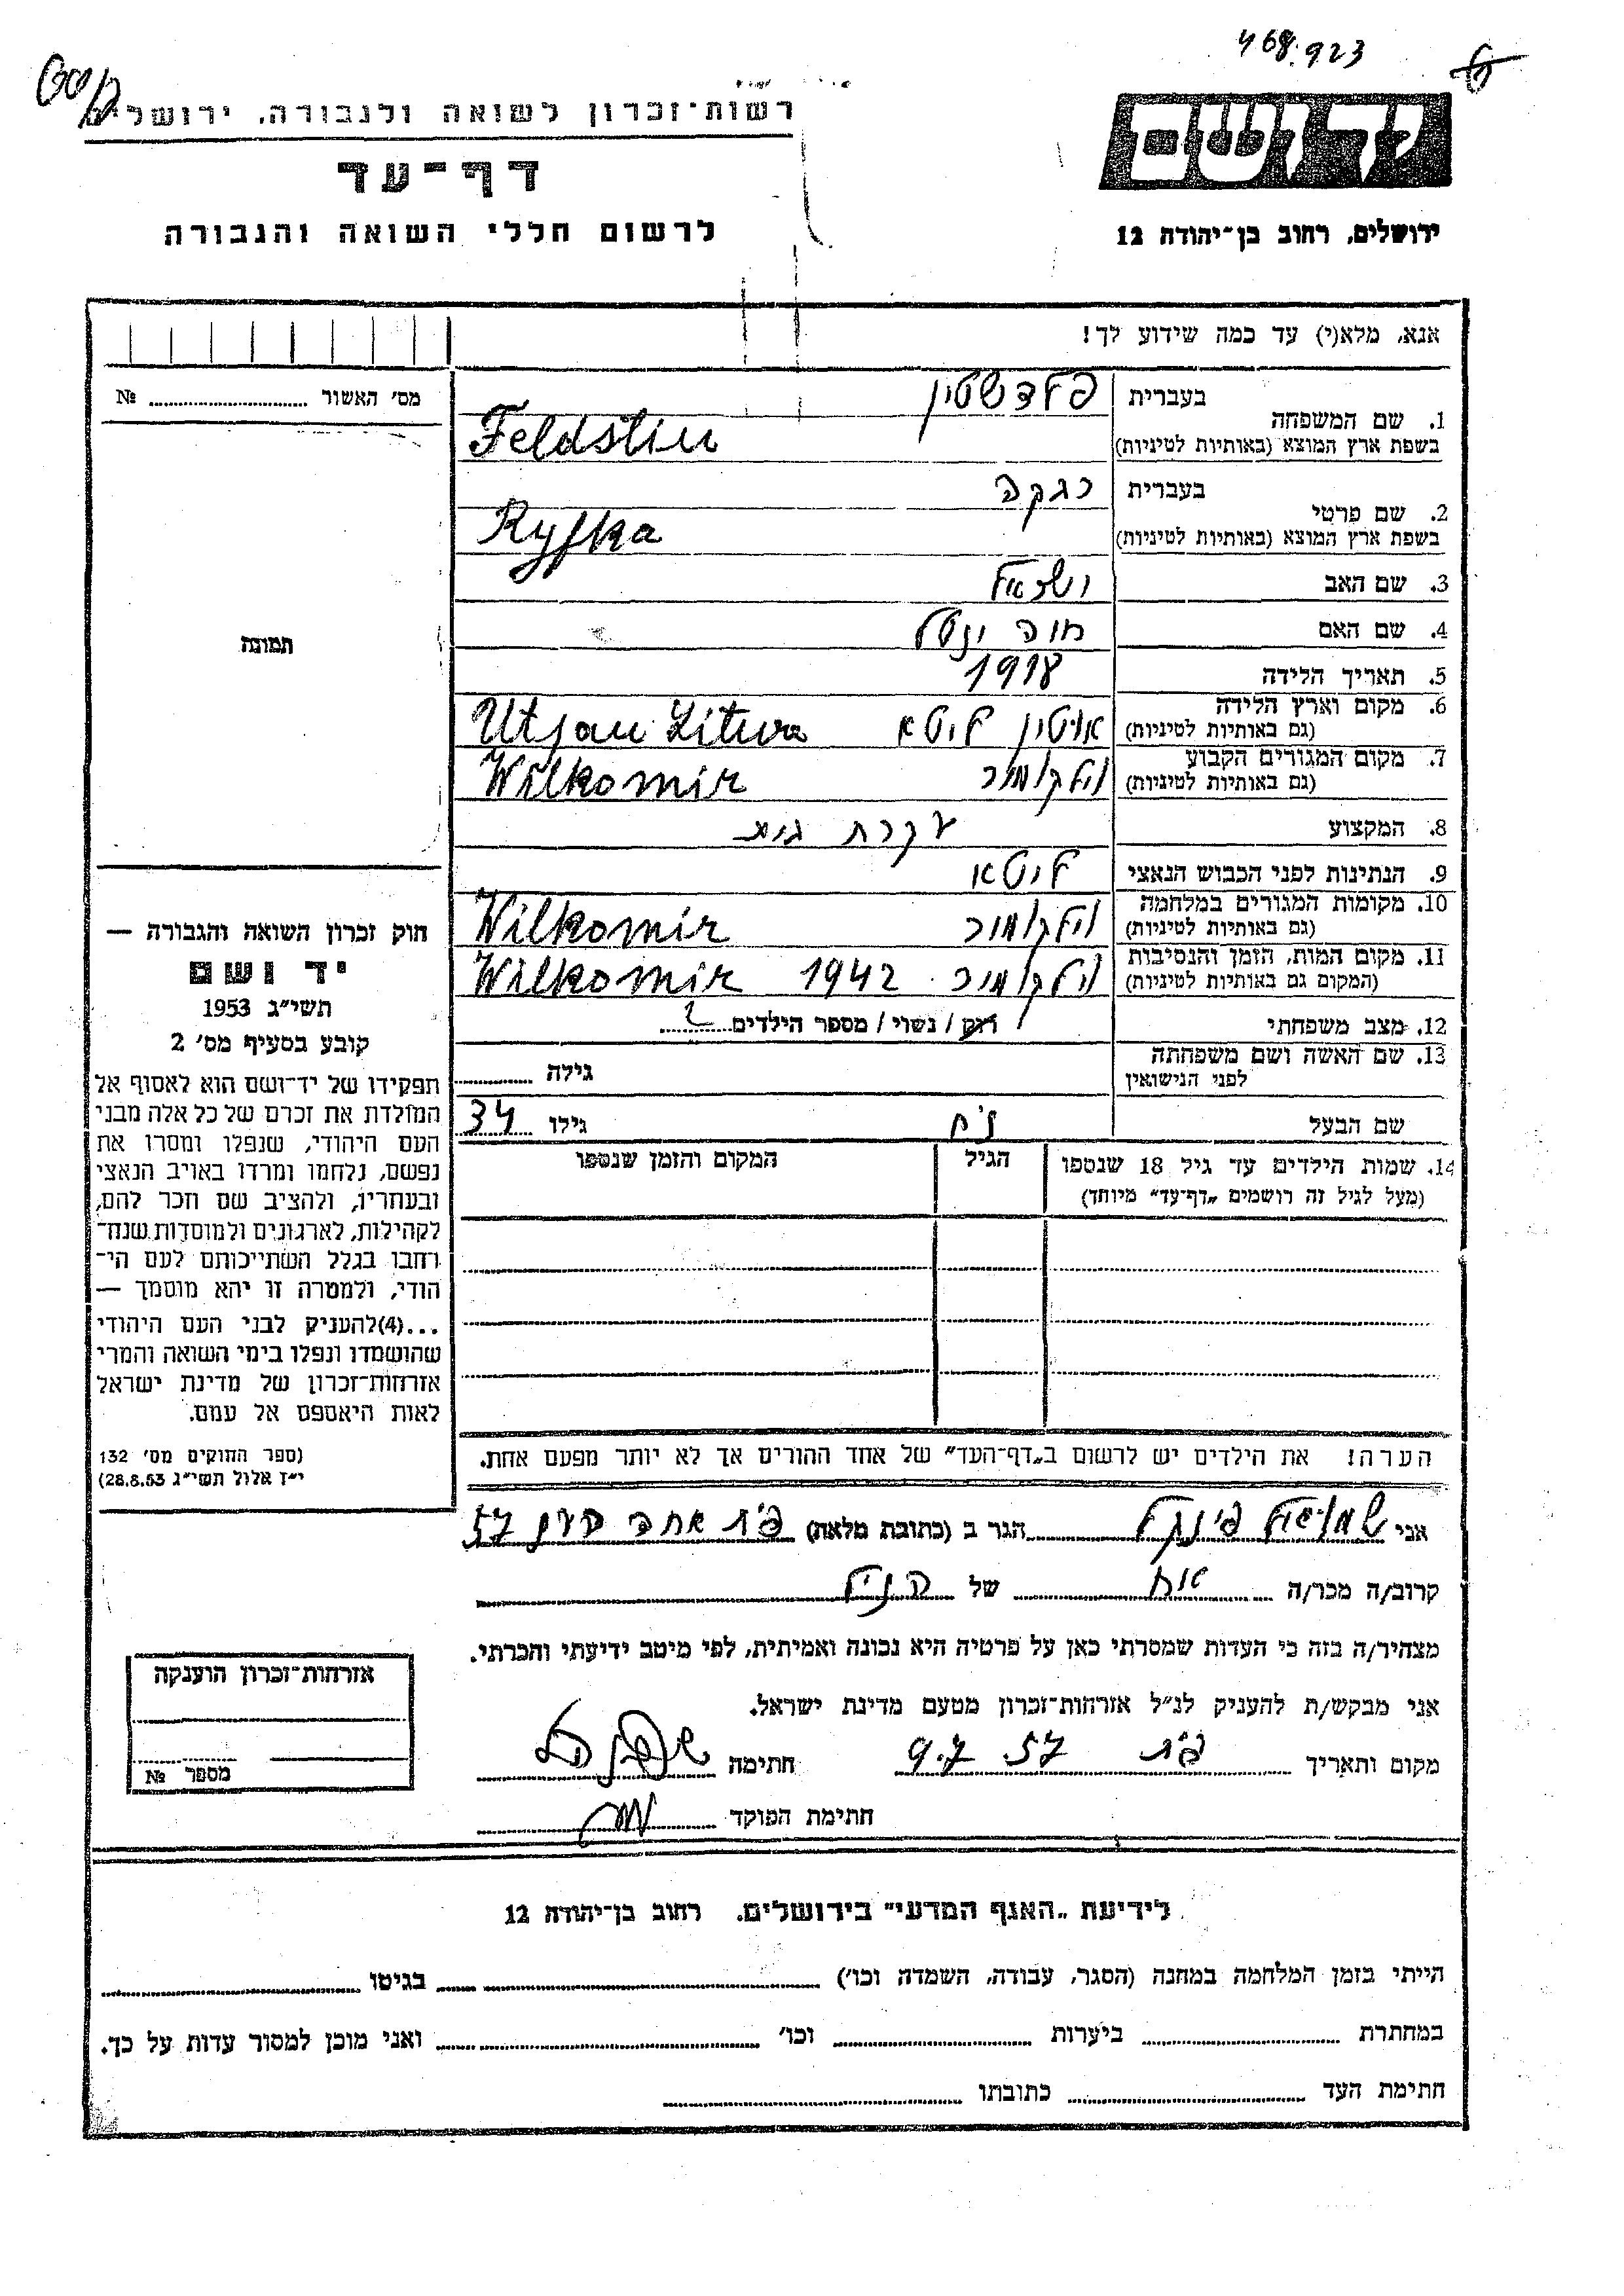 468.923
רשות־זכרון לשואה ולגבורה, ירושלים
דף־עד
לרשום חללי השואה והגבורה
יד ושם
ירושלים, רחוב בן־יהודה 12
אנא, מלא(י) עד כמה שידוע לך!
מס׳ האשור № 
1. שם המשפחה בעברית פלדשטין
בשפת ארץ המוצא (באותיות לטיניות) Feldstin
2. שם פרטי בעברית רבקה
בשפת ארץ המוצא (באותיות לטיניות) Ryfka
3. שם האב ישראל
4. שם האם חוה
5. תאריך הלידה 1918
6. מקום וארץ הלידה
(גם באותיות לטיניות) אוטין ליטא Utjan Litwa
7. מקום המגורים הקבוע
(גם באותיות לטיניות) וילקומיר Wilkomir
8. המקצוע עקרת בית
9. הנתינות לפני הכבוש הנאצי ליטא
10. מקומות המגורים במלחמה
(גם באותיות לטיניות) וילקומיר Wilkomir
11. מקום המות, הזמן והנסיבות
(המקום גם באותיות לטיניות) וילקומיר 1942 Wilkomir
12. מצב משפחתי רוק / נשוי / מספר הילדים 2
13. שם האשה ושם משפחתה
לפני הנישואין גילה
שם הבעל גילו 34
14. שמות הילדים עד גיל 18 שנספו הגיל המקום והזמן שנספו
(מעל לגיל זה רושמים „דף־עד״ מיוחד)
הערה! את הילדים יש לרשום ב„דף־העד״ של אחד ההורים אך לא יותר מפעם אחת.
תמונה
חוק זכרון השואה והגבורה —
יד ושם
תשי״ג 1953
קובע בסעיף מס׳ 2
תפקידו של יד־ושם הוא לאסוף אל
המולדת את זכרם של כל אלה מבני
העם היהודי, שנפלו ומסרו את
נפשם, נלחמו ומרדו באויב הנאצי
ובעוזריו, ולהציב שם וזכר להם,
לקהילות, לארגונים ולמוסדות שנח־
רחבו בגלל השתייכותם לעם הי־
הודי, ולמטרה זו יהא מוסמך —
...(4)להעניק לבני העם היהודי
שהושמדו ונפלו בימי השואה והמרי
אזרחות־זכרון של מדינת ישראל
לאות היאספם אל עמם.
(ספר החוקים מס׳ 132
י״ז אלול תשי״ג 28.8.53)
אני שמואל פינקל הגר ב (כתובת מלאה) פ״ת אחד העם 57
קרוב/ה מכר/ה אח של הנ״ל
מצהיר/ה בזה כי העדות שמסרתי כאן על פרטיה היא נכונה ואמיתית, לפי מיטב ידיעתי והכרתי.
אני מבקש/ת להעניק לנ״ל אזרחות־זכרון מטעם מדינת ישראל.
מקום ותאריך פ״ת 9.7 57 חתימה
חתימת הפוקד
אזרחות־זכרון הוענקה
מספר №
לידיעת „האגף המדעי״ בירושלים, רחוב בן־יהודה 12
הייתי בזמן המלחמה במחנה (הסגר, עבודה, השמדה וכו׳) בגיטו
במחתרת ביערות וכו׳ ואני מוכן למסור עדות על כך.
חתימת העד כתובתו